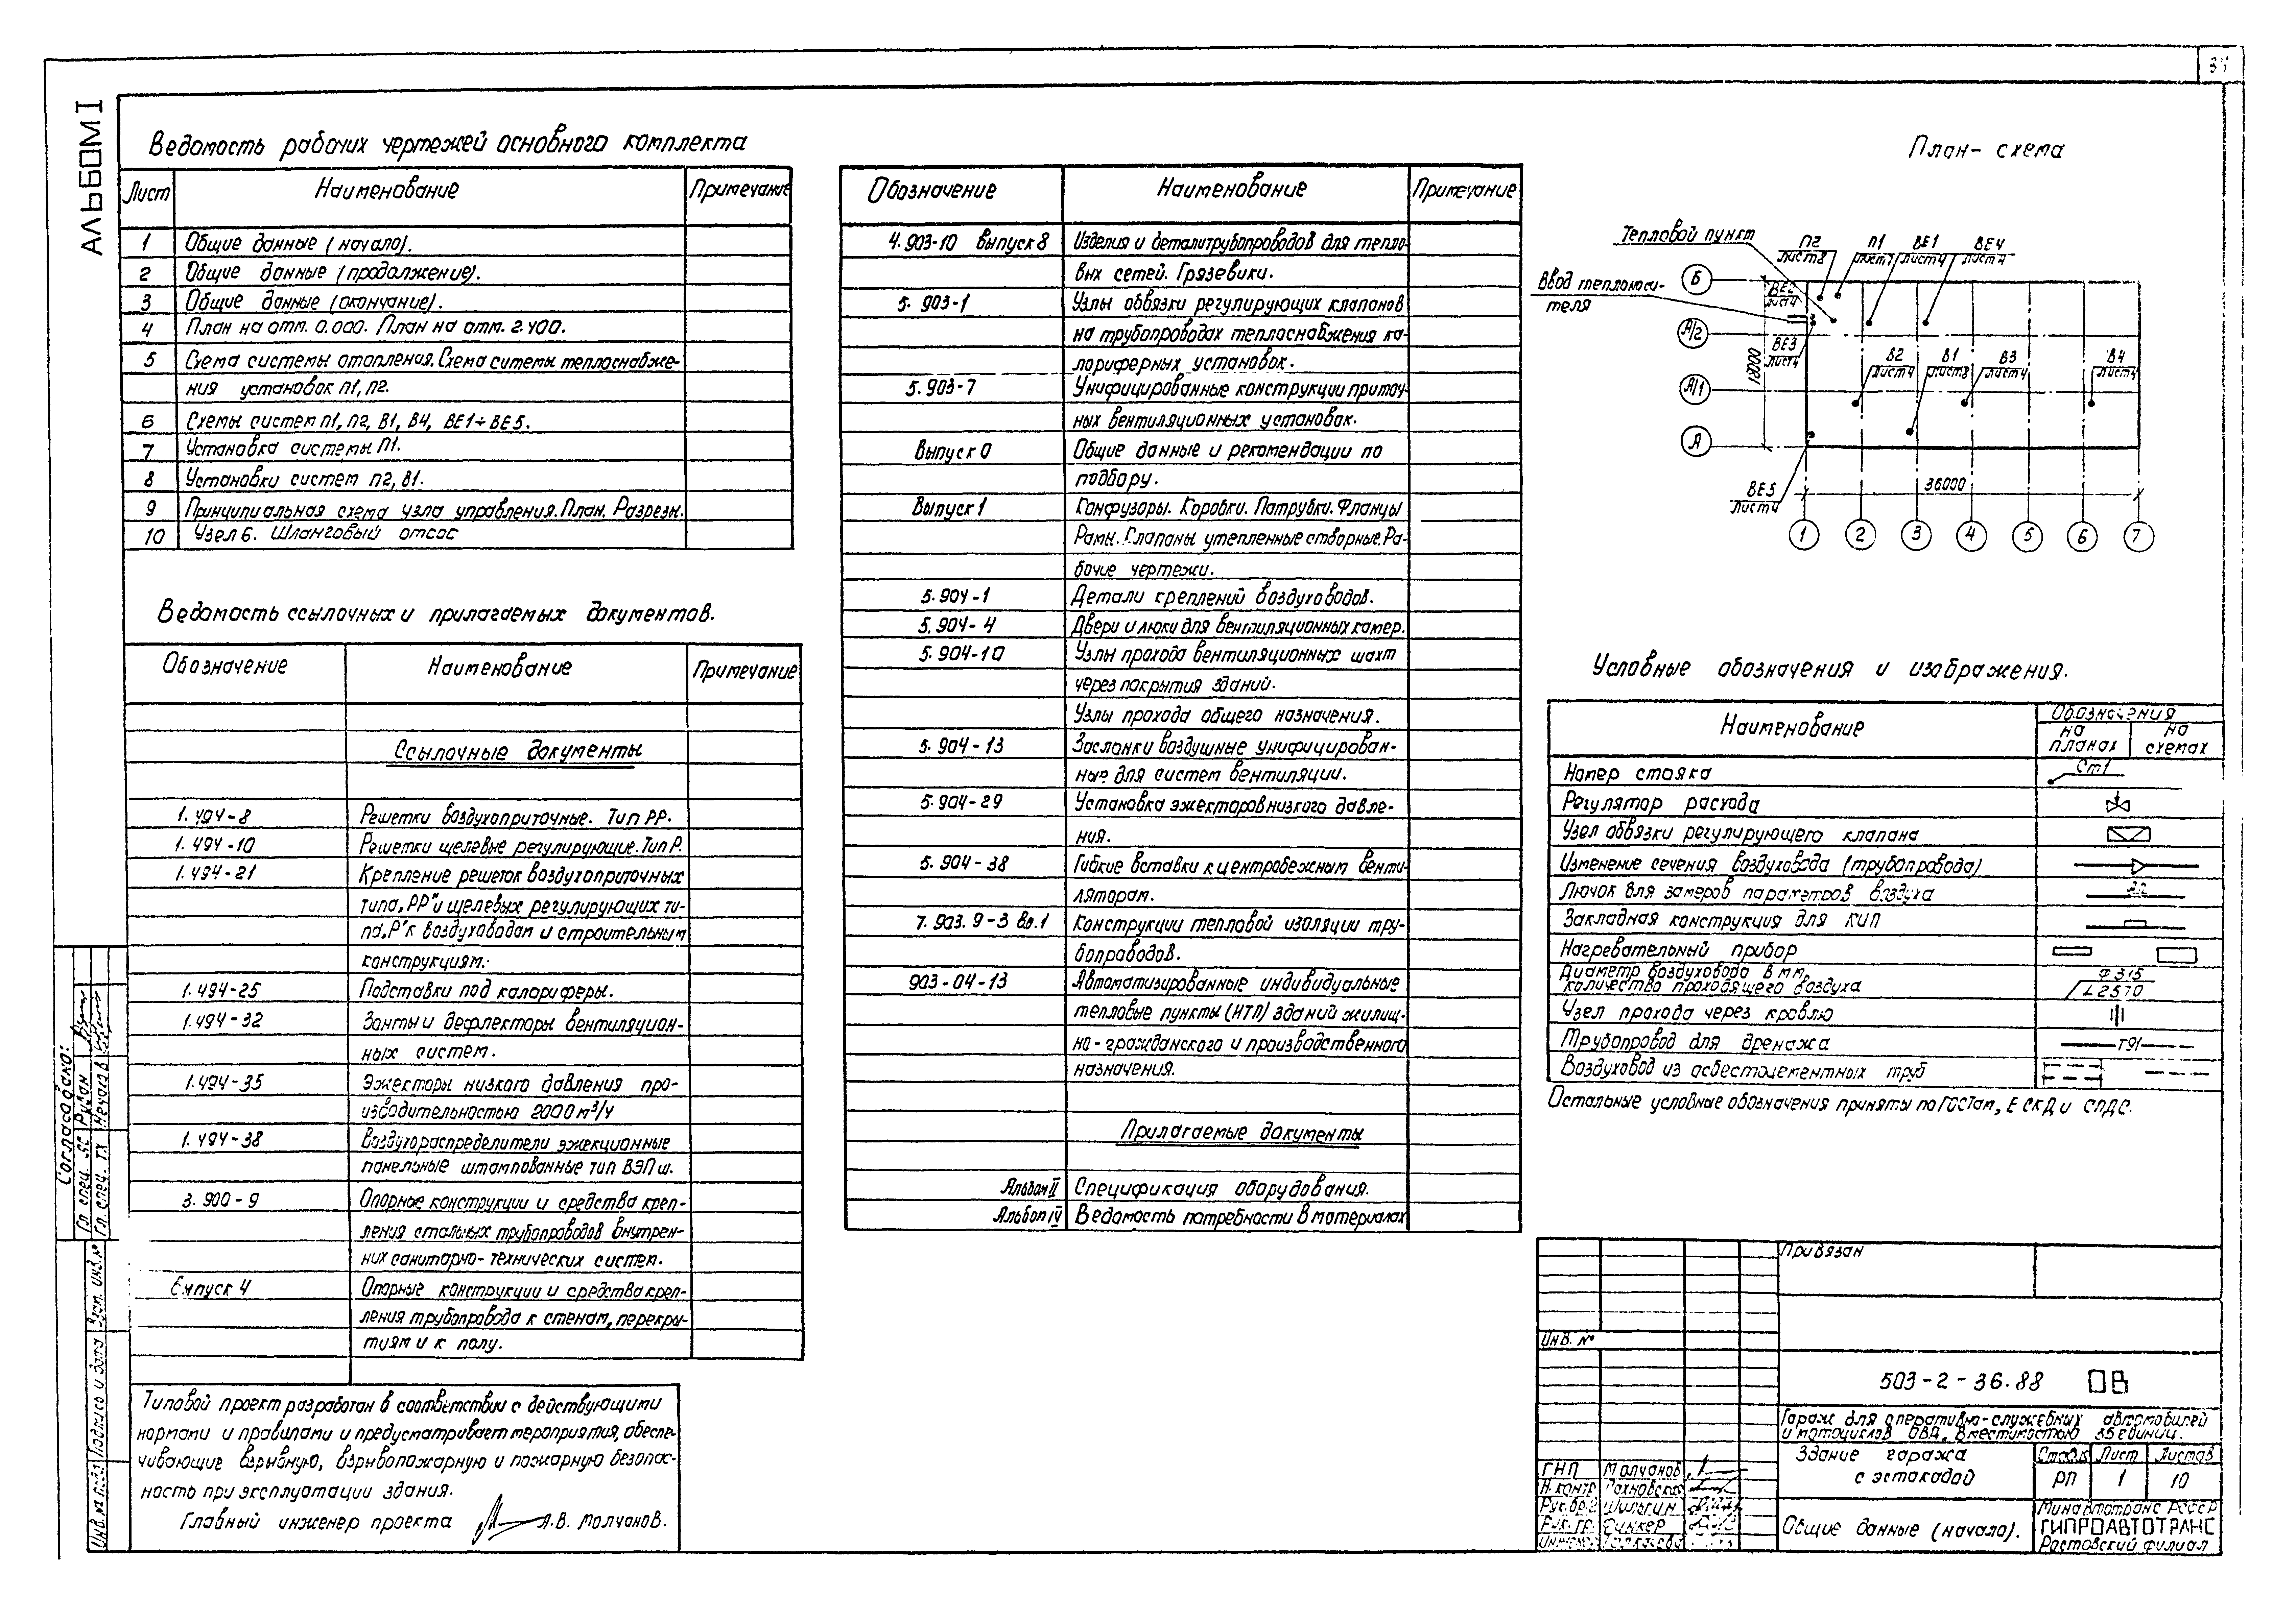 34
АЛЬБОМ I
Ведомость рабочих чертежей основного комплекта
Лист Наименование Примечание
1 Общие данные (начало).
2 Общие данные (продолжение).
3 Общие данные (окончание).
4 План на отм. 0.000. План на отм. 2.400.
5 Схема системы отопления. Схема ситемы теплоснабже-
ния установок П1, П2.
6 Схемы систем П1, П2, В1, В4, ВЕ1÷ВЕ5.
7 Установка системы П1.
8 Установки систем П2, В1.
9 Принципиальная схема узла управления. План. Разрезы.
10 Узел 6. Шланговый отсос
Ведомость ссылочных и прилагаемых документов.
Обозначение Наименование Примечание
Ссылочные документы
1.494-8 Решетки воздухоприточные. Тип РР.
1.494-10 Решетки щелевые регулирующие. Тип Р.
1.494-21 Крепление решеток воздухоприточных
типа „РР" и щелевых регулирующих ти-
па „Р" к воздуховодам и строительным
конструкциям.
1.494-25 Подставки под калориферы.
1.494-32 Зонты и дефлекторы вентиляцион-
ных систем.
1.494-35 Эжекторы низкого давления про-
изводительностью 2000 м³/ч
1.494-38 Воздухораспределители эжекционные
панельные штампованные тип ВЭПш.
3.900-9 Опорные конструкции и средства креп-
ления стальных трубопроводов внутрен-
них санитарно-технических систем.
Выпуск 4 Опорные конструкции и средства креп-
ления трубопровода к стенам, перекры-
тиям и к полу.
Типовой проект разработан в соответствии с действующими
нормами и правилами и предусматривает мероприятия, обеспе-
чивающие взрывную, взрывопожарную и пожарную безопас-
ность при эксплуатации здания.
Главный инженер проекта А.В. Молчанов.
Обозначение Наименование Примечание
4.903-10 выпуск 8 Изделия и детали трубопроводов для тепло-
вых сетей. Грязевики.
5.903-1 Узлы обвязки регулирующих клапанов
на трубопроводах теплоснабжения ка-
лориферных установок.
5.903-7 Унифицированные конструкции приточ-
ных вентиляционных установок.
Выпуск 0 Общие данные и рекомендации по
подбору.
Выпуск 1 Конфузоры. Коробки. Патрубки. Фланцы
Рамы. Клапаны утепленные створные. Ра-
бочие чертежи.
5.904-1 Детали креплений воздуховодов.
5.904-4 Двери и люки для вентиляционных камер.
5.904-10 Узлы прохода вентиляционных шахт
через покрытия зданий.
Узлы прохода общего назначения.
5.904-13 Заслонки воздушные унифицирован-
ные для систем вентиляции.
5.904-29 Установка эжекторов низкого давле-
ния.
5.904-38 Гибкие вставки к центробежным венти-
ляторам.
7.903.9-3 вп.1 Конструкции тепловой изоляции тру-
бопроводов.
903-04-13 Автоматизированные индивидуальные
тепловые пункты (ИТП) зданий жилищ-
но-гражданского и производственного
назначения.
Прилагаемые документы
Альбом II Спецификация оборудования.
Альбом IV Ведомость потребности в материалах
План-схема
Тепловой пункт
Ввод теплоноси-
теля
П2 П1 ВЕ1 ВЕ4
Лист 8 Лист 7 Лист 4 Лист 4
ВЕ2
Лист 4
ВЕ3
Лист 4
В2 В1 В3 В4
Лист 4 Лист 8 Лист 4 Лист 4
ВЕ5
Лист 4
Б
А/2
А/1
А
18000
36000
1 2 3 4 5 6 7
Условные обозначения и изображения.
Наименование Обозначения
на планах на схемах
Номер стояка Ст1
Регулятор расхода
Узел обвязки регулирующего клапана
Изменение сечения воздуховода (трубопровода)
Лючок для замеров параметров воздуха
Закладная конструкция для КИП
Нагревательный прибор
Диаметр воздуховода в мм, Ф315
количество проходящего воздуха L2570
Узел прохода через кровлю
Трубопровод для дренажа Т91
Воздуховод из асбестоцементных труб
Остальные условные обозначения приняты по ГОСТам, ЕСКД и СПДС.
Привязан
Инв. №
503-2-36.88 ОВ
Гараж для оперативно-служебных автомобилей
и мотоциклов ОВД, вместимостью 35 единиц.
Здание гаража
с эстакадой
Стадия Лист Листов
РП 1 10
Общие данные (начало).
Минавтотранс РСФСР
ГИПРОАВТОТРАНС
Ростовский филиал
ГИП Молчанов
Н.контр.
Рук.бр. Шильгин
Рук. гр. Финкер
Согласовано:
Гл. спец. ЯС Рубан
Гл. спец. ТХ
Инв. № подл. Подпись и дата Взам. инв. №